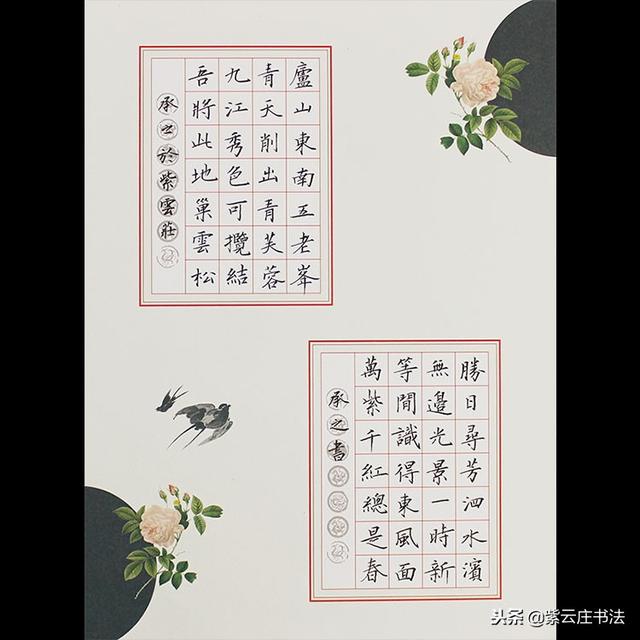 廬山東南五老峯
青天削出青芙蓉
九江秀色可攬結
吾將此地巢雲松
承之於紫雲莊
勝日尋芳泗水濱
無邊光景一時新
等閒識得東風面
萬紫千紅總是春
承之書
头条@紫云庄书法